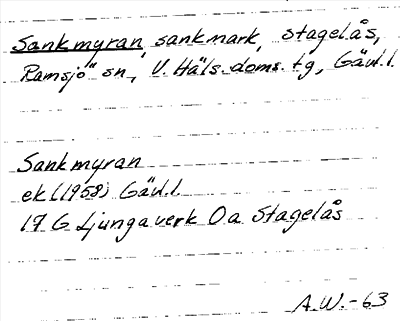 Sankmyran, sankmark, Stagelås,
Ramsjö sn, V. Häls. doms. tg, Gävl. l.
Sankmyran
ek (1958) Gävl. l
17 G Ljungaverk 0a Stagelås
A.W.-63